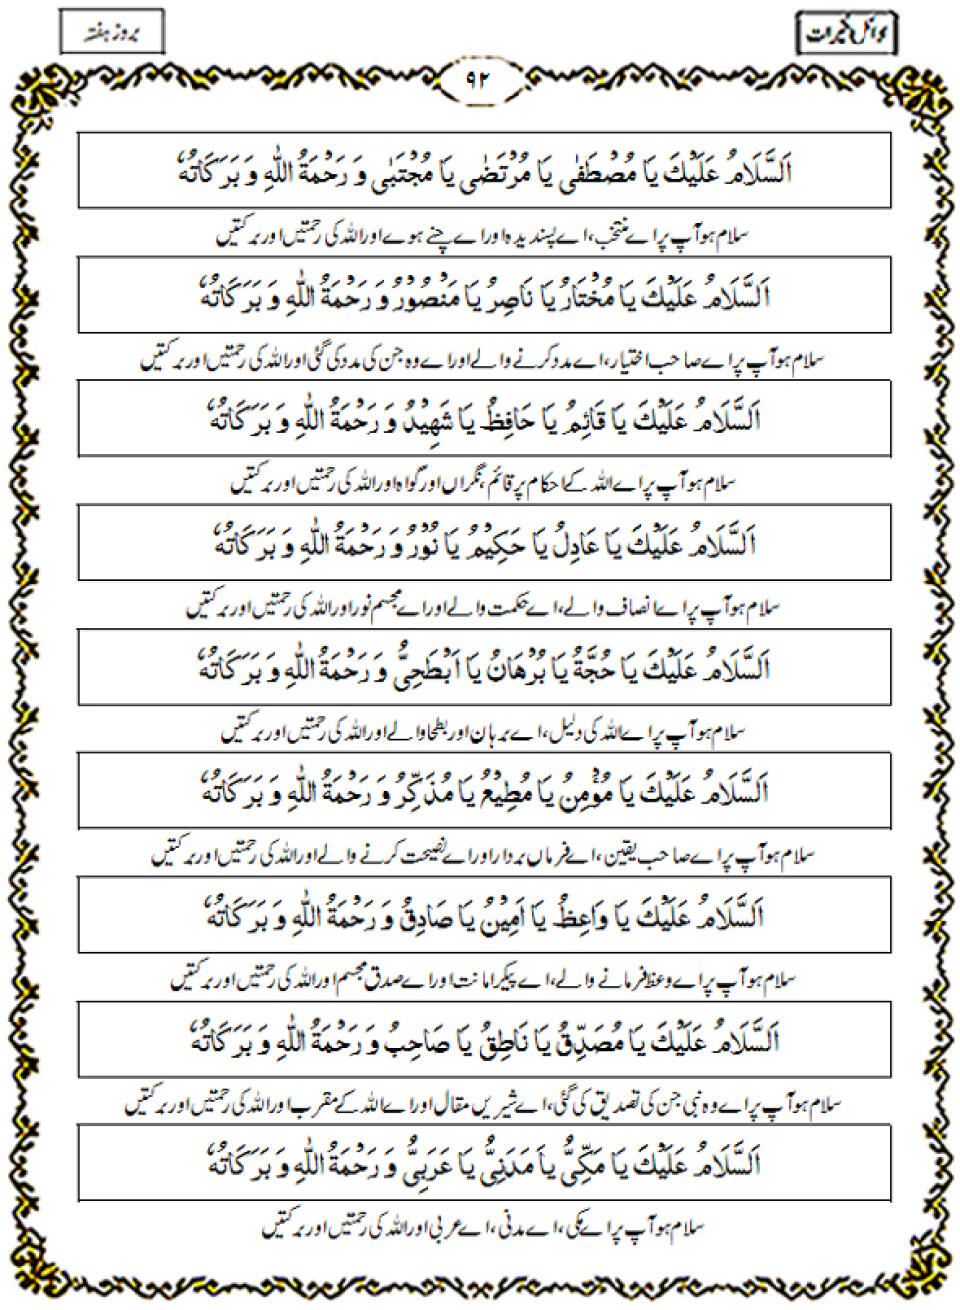 دلائل الخیرات
بروز ہفتہ
۹۲
اَلسَّلَامُ عَلَیْكَ یَا مُصْطَفٰی یَا مُرْتَضٰی یَا مُجْتَبٰی وَ رَحْمَةُ اللّٰهِ وَ بَرَکَاتُهٗ
سلام ہو آپ پر اے منتخب، اے پسندیدہ اور اے چنے ہوے اور اللہ کی رحمتیں اور برکتیں
اَلسَّلَامُ عَلَیْكَ یَا مُخْتَارُ یَا نَاصِرُ یَا مَنْصُوْرُ وَ رَحْمَةُ اللّٰهِ وَ بَرَکَاتُهٗ
سلام ہو آپ پر اے صاحب اختیار، اے مدد کرنے والے اور اے وہ جن کی مدد کی گئی اور اللہ کی رحمتیں اور برکتیں
اَلسَّلَامُ عَلَیْكَ یَا قَائِمُ یَا حَافِظُ یَا شَهِیْدُ وَ رَحْمَةُ اللّٰهِ وَ بَرَکَاتُهٗ
سلام ہو آپ پر اے اللہ کے احکام پر قائم، نگراں اور گواہ اور اللہ کی رحمتیں اور برکتیں
اَلسَّلَامُ عَلَیْكَ یَا عَادِلُ یَا حَکِیْمُ یَا نُوْرُ وَ رَحْمَةُ اللّٰهِ وَ بَرَکَاتُهٗ
سلام ہو آپ پر اے انصاف والے، اے حکمت والے اور اے مجسم نور اور اللہ کی رحمتیں اور برکتیں
اَلسَّلَامُ عَلَیْكَ یَا حُجَّةُ یَا بُرْهَانُ یَا اَبْطَحِیُّ وَ رَحْمَةُ اللّٰهِ وَ بَرَکَاتُهٗ
سلام ہو آپ پر اے اللہ کی دلیل، اے برہان اور بطحا والے اور اللہ کی رحمتیں اور برکتیں
اَلسَّلَامُ عَلَیْكَ یَا مُؤْمِنُ یَا مُطِیْعُ یَا مُذَکِّرُ وَ رَحْمَةُ اللّٰهِ وَ بَرَکَاتُهٗ
سلام ہو آپ پر اے صاحب یقین، اے فرماں بردار اور اے نصیحت کرنے والے اور اللہ کی رحمتیں اور برکتیں
اَلسَّلَامُ عَلَیْكَ یَا وَاعِظُ یَا اَمِیْنُ یَا صَادِقُ وَ رَحْمَةُ اللّٰهِ وَ بَرَکَاتُهٗ
سلام ہو آپ پر اے وعظ فرمانے والے، اے پیکر امانت اور اے صدق مجسم اور اللہ کی رحمتیں اور برکتیں
اَلسَّلَامُ عَلَیْكَ یَا مُصَدِّقُ یَا نَاطِقُ یَا صَاحِبُ وَ رَحْمَةُ اللّٰهِ وَ بَرَکَاتُهٗ
سلام ہو آپ پر اے وہ نبی جن کی تصدیق کی گئی، اے شیریں مقال اور اے اللہ کے مقرب اور اللہ کی رحمتیں اور برکتیں
اَلسَّلَامُ عَلَیْكَ یَا مَکِّیُّ یَا مَدَنِیُّ یَا عَرَبِیُّ وَ رَحْمَةُ اللّٰهِ وَ بَرَکَاتُهٗ
سلام ہو آپ پر اے مکی، اے مدنی، اے عربی اور اللہ کی رحمتیں اور برکتیں